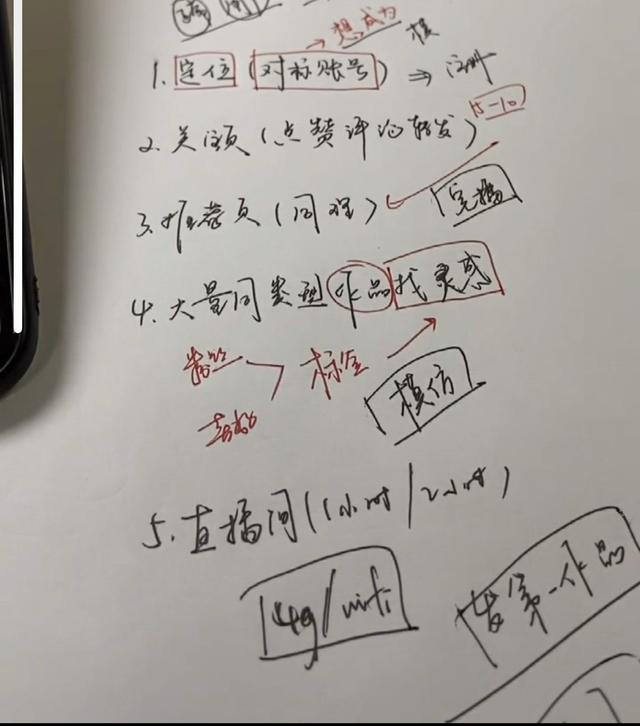 想成为
1. 定位 (对标账号) ⇒ 注册
2. 关注页 (点赞评论转发) 15-10
3. 推荐页 (同程)
完播
4. 大量同类型作品找灵感
粉丝 标签
模仿
5. 直播间 (1小时/2小时)
4g/wifi
发第一作品